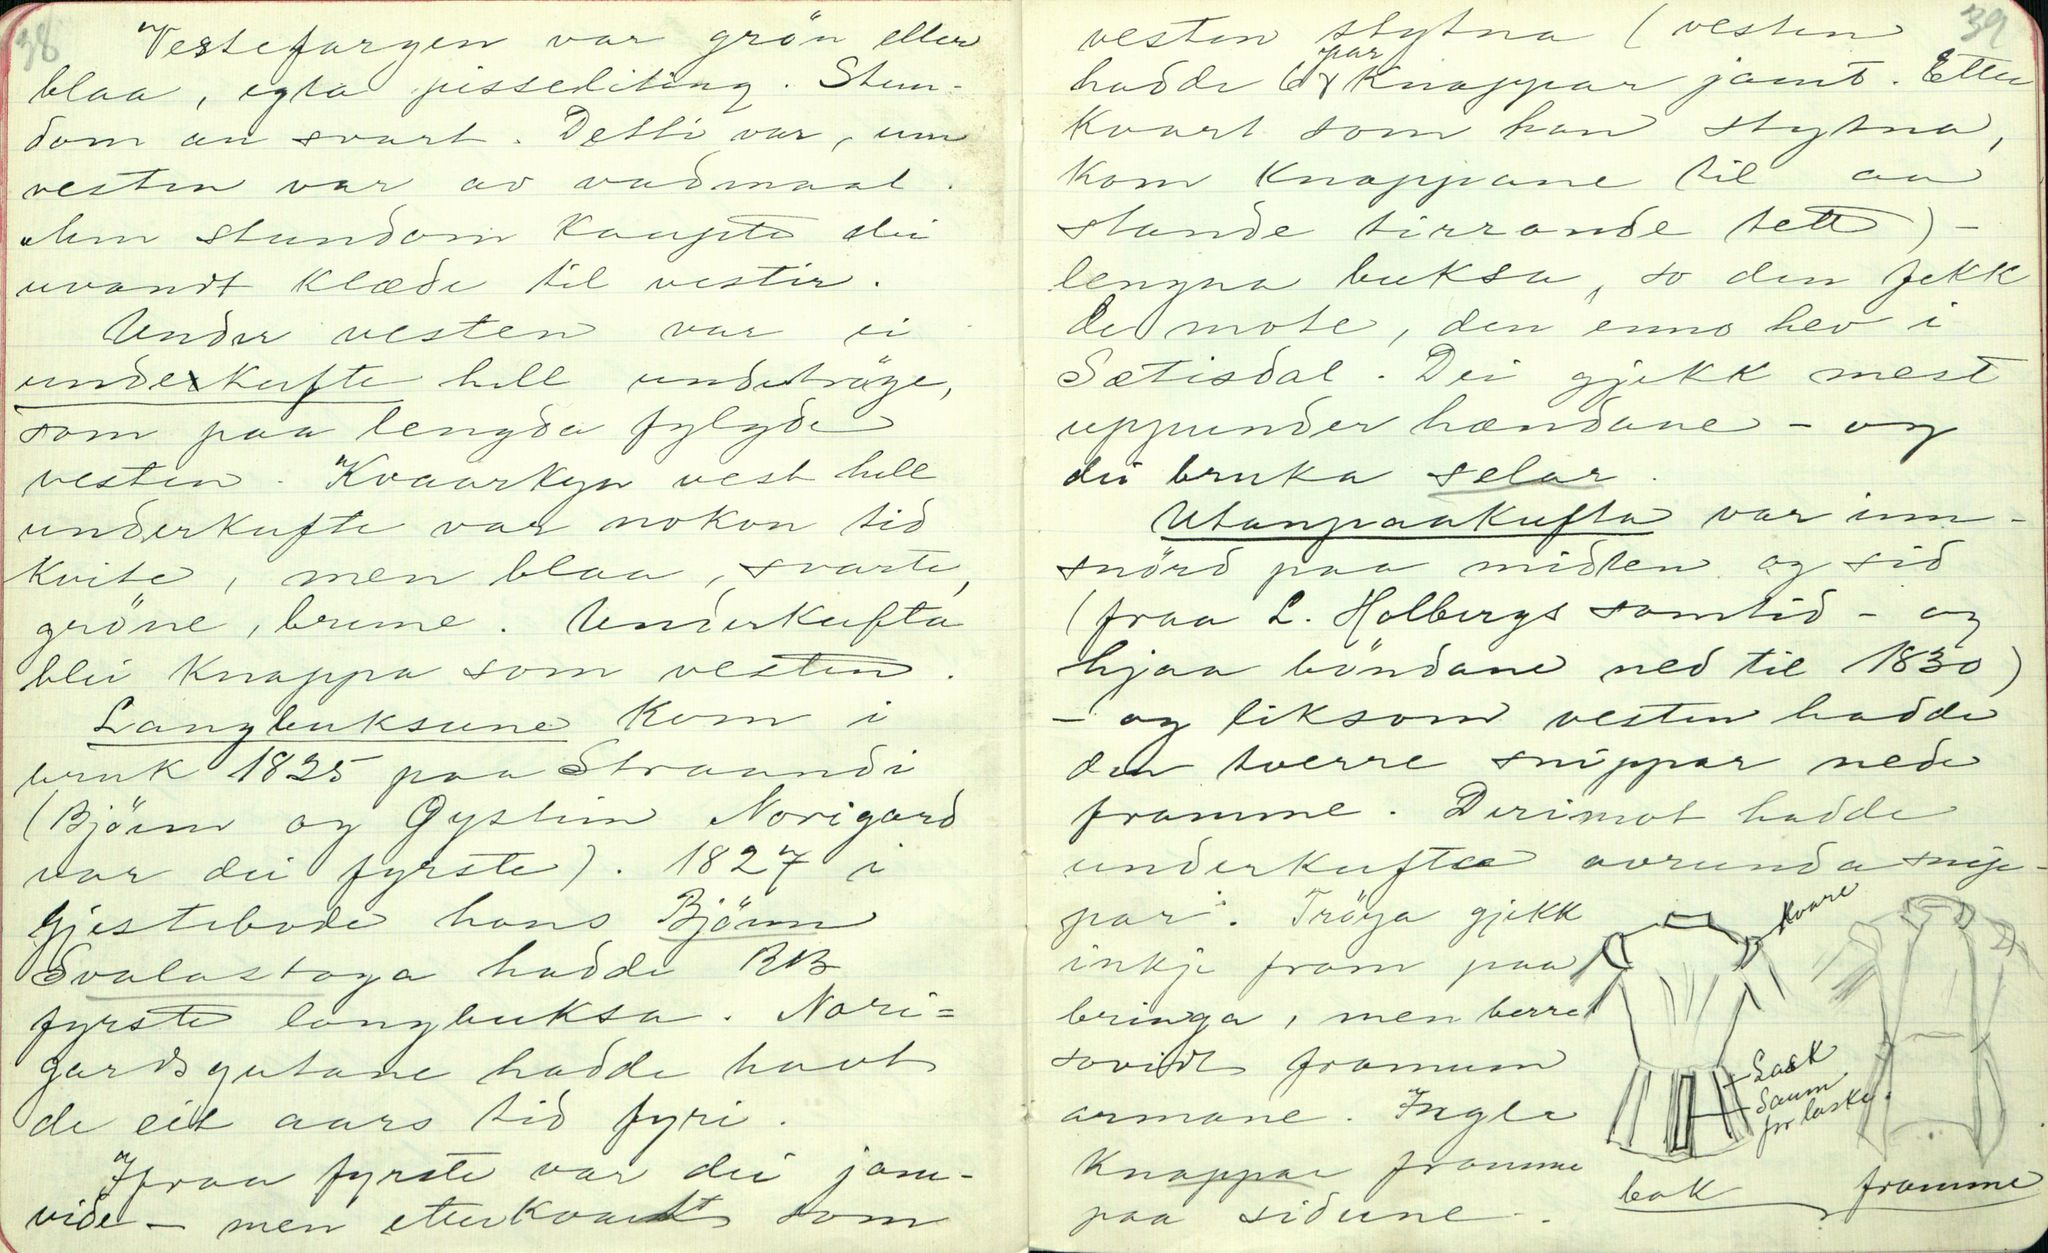 38
Vestefargen var grön eller
blaa, egta pissediting. Stun-
dom au svart. Detti var, um
vesten var av vadmaal.
Um stundom kaupte dei
uvandt klæde til vestir.
Under vesten var ei
underkufte hell undetröge,
som paa lengda fylgde
vesten. Kvaarkyn vest hell
underkufte var nokon tid
kvite, men blaa, svarte,
gröne, brune. Underkufta
blei knappa som vesten.
Langbuksune kom i
bruk 1825 paa Straandi
(Björn og Øystein Norigard
var dei fyrste). 1827 i
gjestebode hans Björn
Svalastoga hadde RB
fyrste langbuksa. Nori=
gardsgutane hadde havt
de eit aars tid fyri.
Ifraa fyrste var dei jam-
vide – men etterkvart som
39
vesten stytna (vesten
hadde 6 par knappar jamt. Etter
kvart som han stytna,
kom knappane til aa
stande tirrande tett) –
lengna buksa, so den fekk
de mote, den enno hev i
Sætisdal. Dei gjekk mest
uppunder hændane – og
dei bruka selar.
Utanpaakufta var inn-
snörd paa midten og sid
(fraa L. Holbergs samtid – og
hjaa böndane ned til 1830)
– og liksom vesten hadde
den tverre snippar nede
framme. Derimot hadde
underkufta avrunda snip-
par. Tröya gjekk
inkje fram paa
bringa, men berre
sovidt framum
armane. Ingle
knappar framme
paa sidune.
kvare
Lask
Saum
for laske.
bak
framme